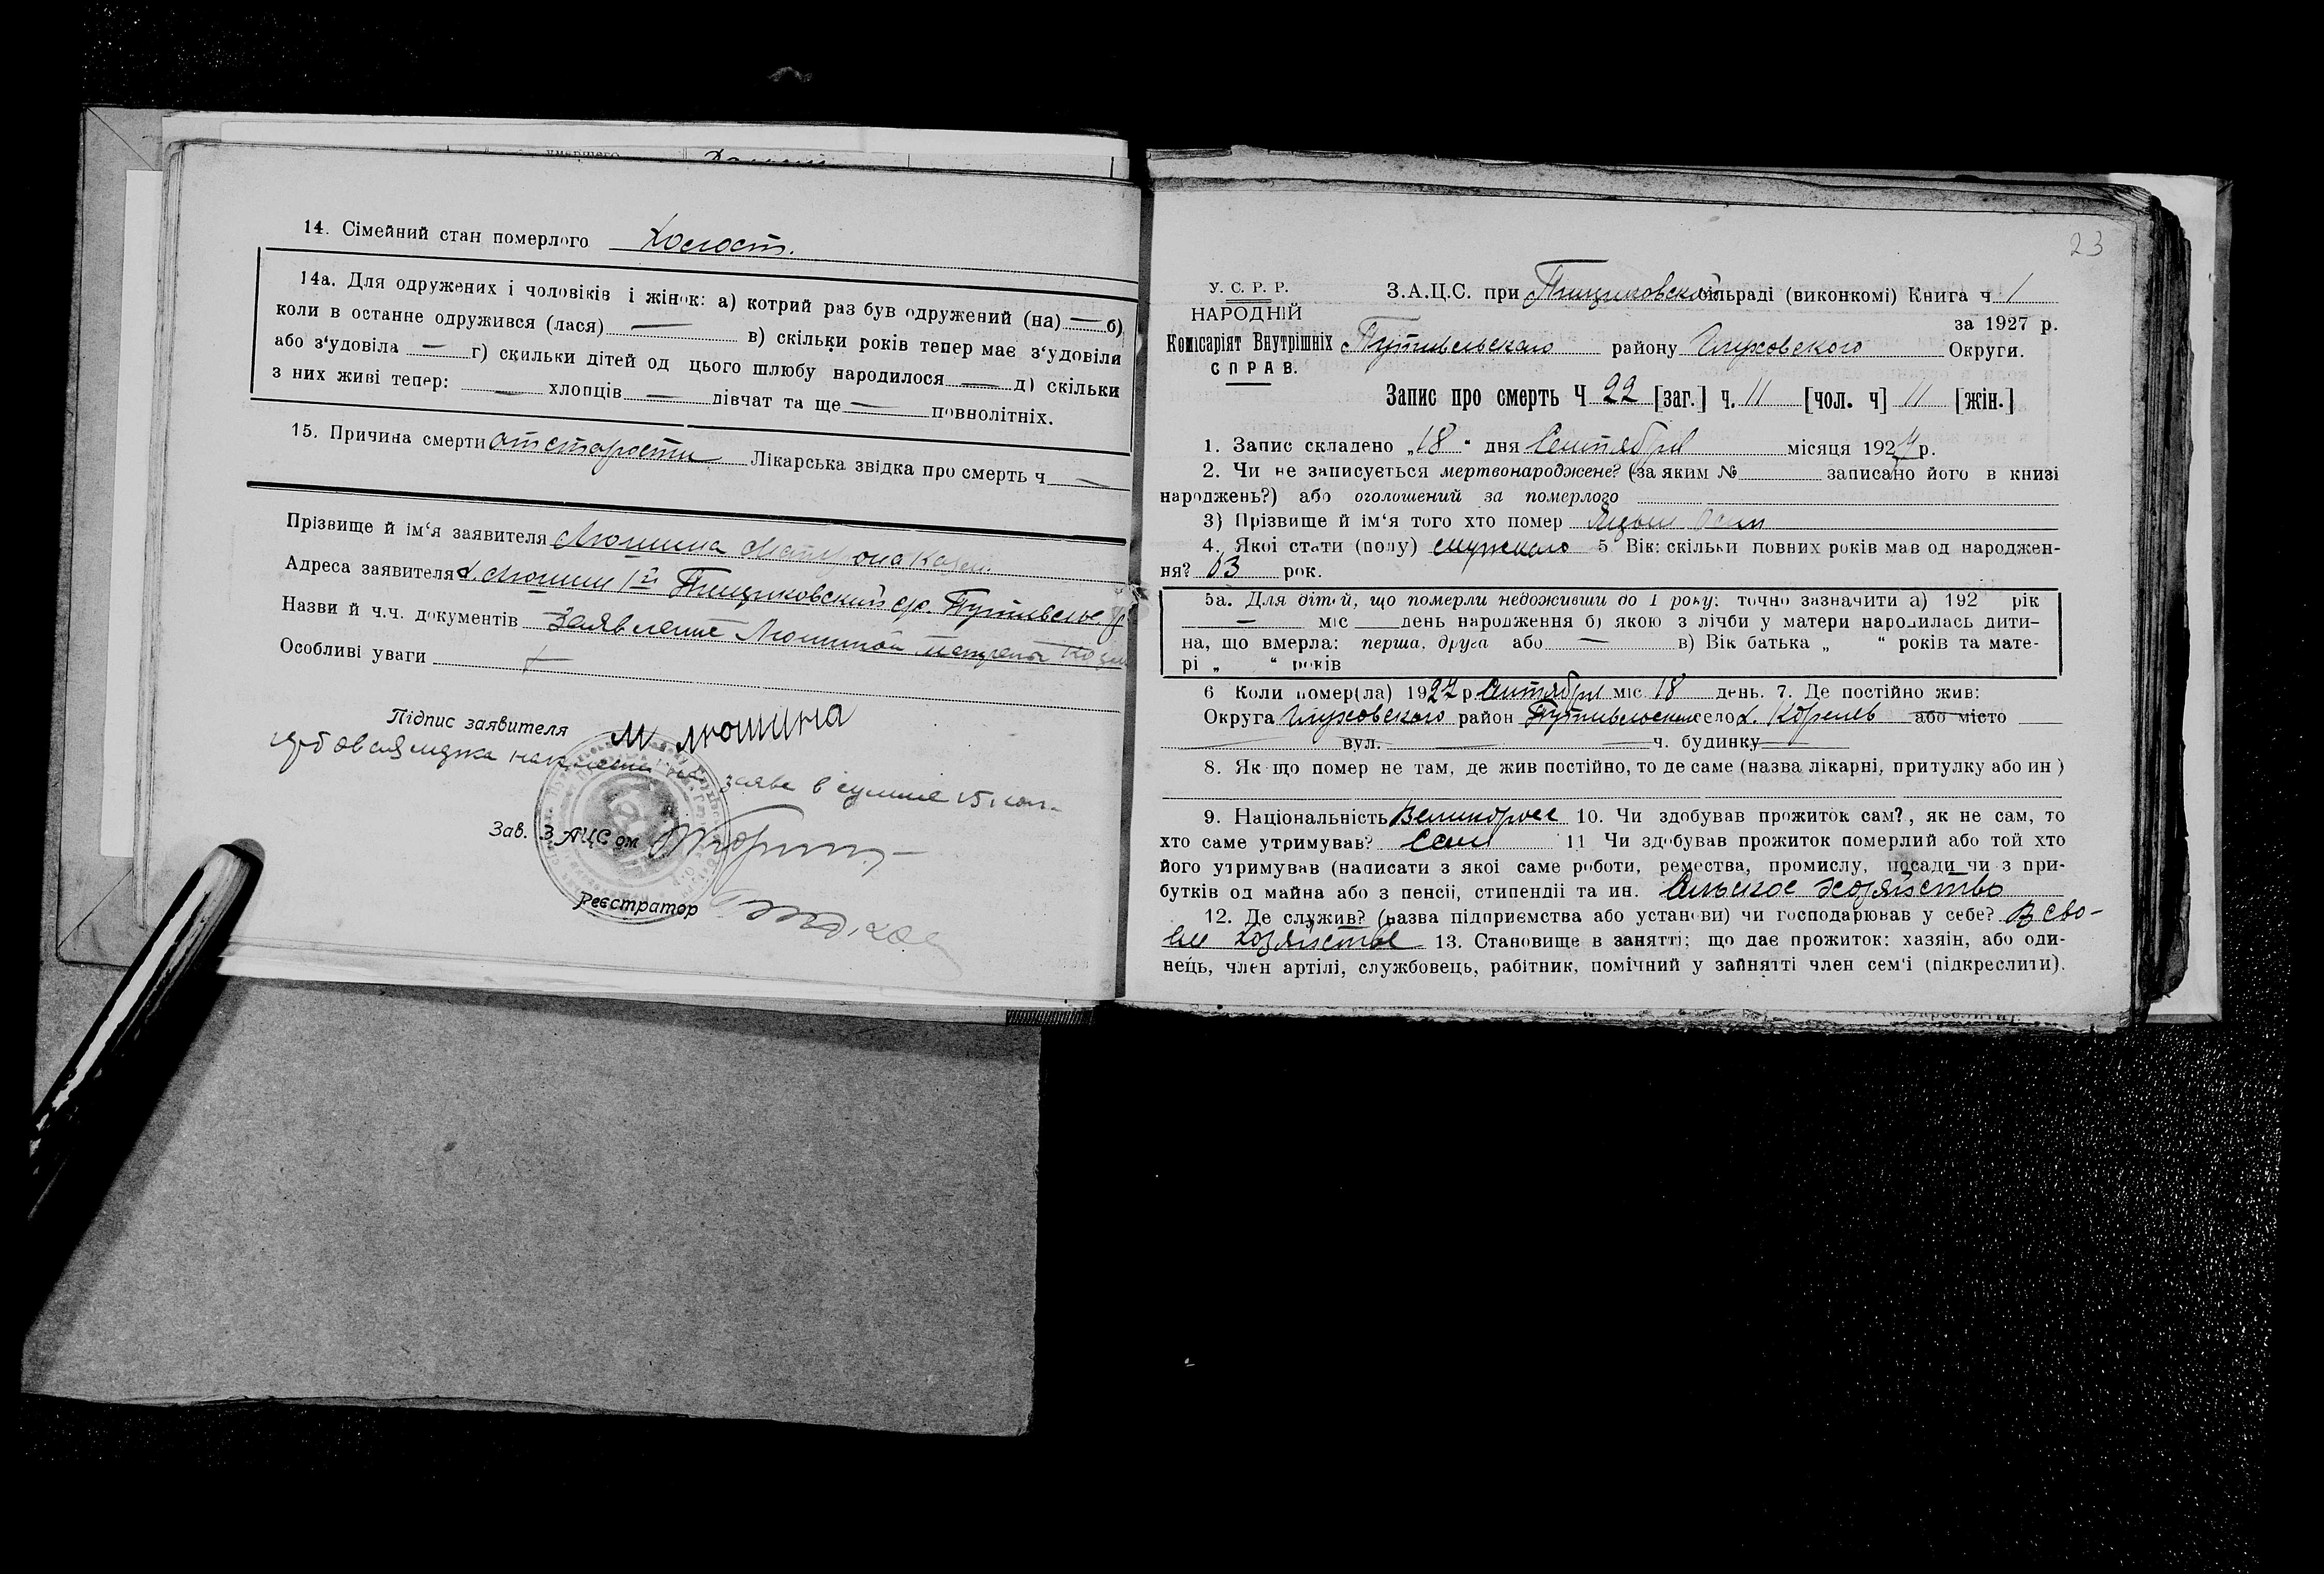 14. Сімейний стан померлого Холост.
14а. Для одружених і чоловіків і жінок: а) котрий раз був одружений (на) — б)
коли в останне одружився (лася) — в) скільки років тепер має з‘удовіли
або з‘удовіла — г) скильки дітей од цього шлюбу народилося — д) скільки
з них живі тепер: — хлопців — дівчат та ще — повнолітніх.
15. Причина смерти от старости Лікарська звідка про смерть ч —
Прізвище й ім‘я заявителя Люшина Матрона
Адреса заявителя Люшин 1й Пищиковский Путивльс
Назви й ч.ч. документів Заявление Люшиной
Особливі уваги
Підпис заявителя М люшина
заяве в сумме 15 коп.
Зав. З АЦС ом
Реєстратор
23
У. С. Р. Р.
НАРОДНІЙ
Комісаріят Внутрішніх
СПРАВ.
З.А.Ц.С. при Пищиковской сільраді (виконкомі) Книга ч 1
за 1927 р.
Путивльского району Глуховского Округи.
Запис про смерть Ч 22 [заг.] ч. 11 [чол. ч] 11 [жін.]
1. Запис складено „18“ дня Сентября місяця 1927 р.
2. Чи не записується мертвонароджене? (за яким № записано його в книзі
народжень?) або оголошений за померлого
3) Прізвище й ім‘я того хто помер
4. Якої стати (полу) мужского 5 Вік: скільки повних років мав од народжен-
ня? 63 рок.
5а. Для дітей, що померли недоживши до 1 року: точно зазначити а) 192 рік
— міс день народження б) якою з лічби у матери народилась дити-
на, що вмерла: перша, друга або — в) Вік батька „ “ років та мате-
рі „ “ років
6 Коли помер(ла) 1927 р Сентября міс 18 день. 7. Де постійно жив:
Округа Глуховского район Путивльский село або місто
вул. — ч. будинку —
8. Як що помер не там, де жив постійно, то де саме (назва лікарні, притулку або ин)
9. Національність Великорос 10. Чи здобував прожиток сам?, як не сам, то
хто саме утримував? Сам 11 Чи здобував прожиток померлий або той хто
його утримував (написати з якої саме роботи, ремества, промислу, посади чи з при-
бутків од майна або з пенсії, стипендії та ин. Сельское хозяйство
12. Де служив? (назва підприємства або установи) чи господарював у себе? В сво-
ем хозяйстве 13. Становище в занятті: що дає прожиток: хазяїн, або оди-
нець, член артілі, службовець, рабітник, помічний у зайнятті член сем‘ї (підкреслити).